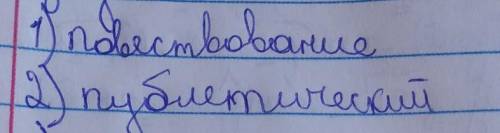 1) повествование
2) публетический